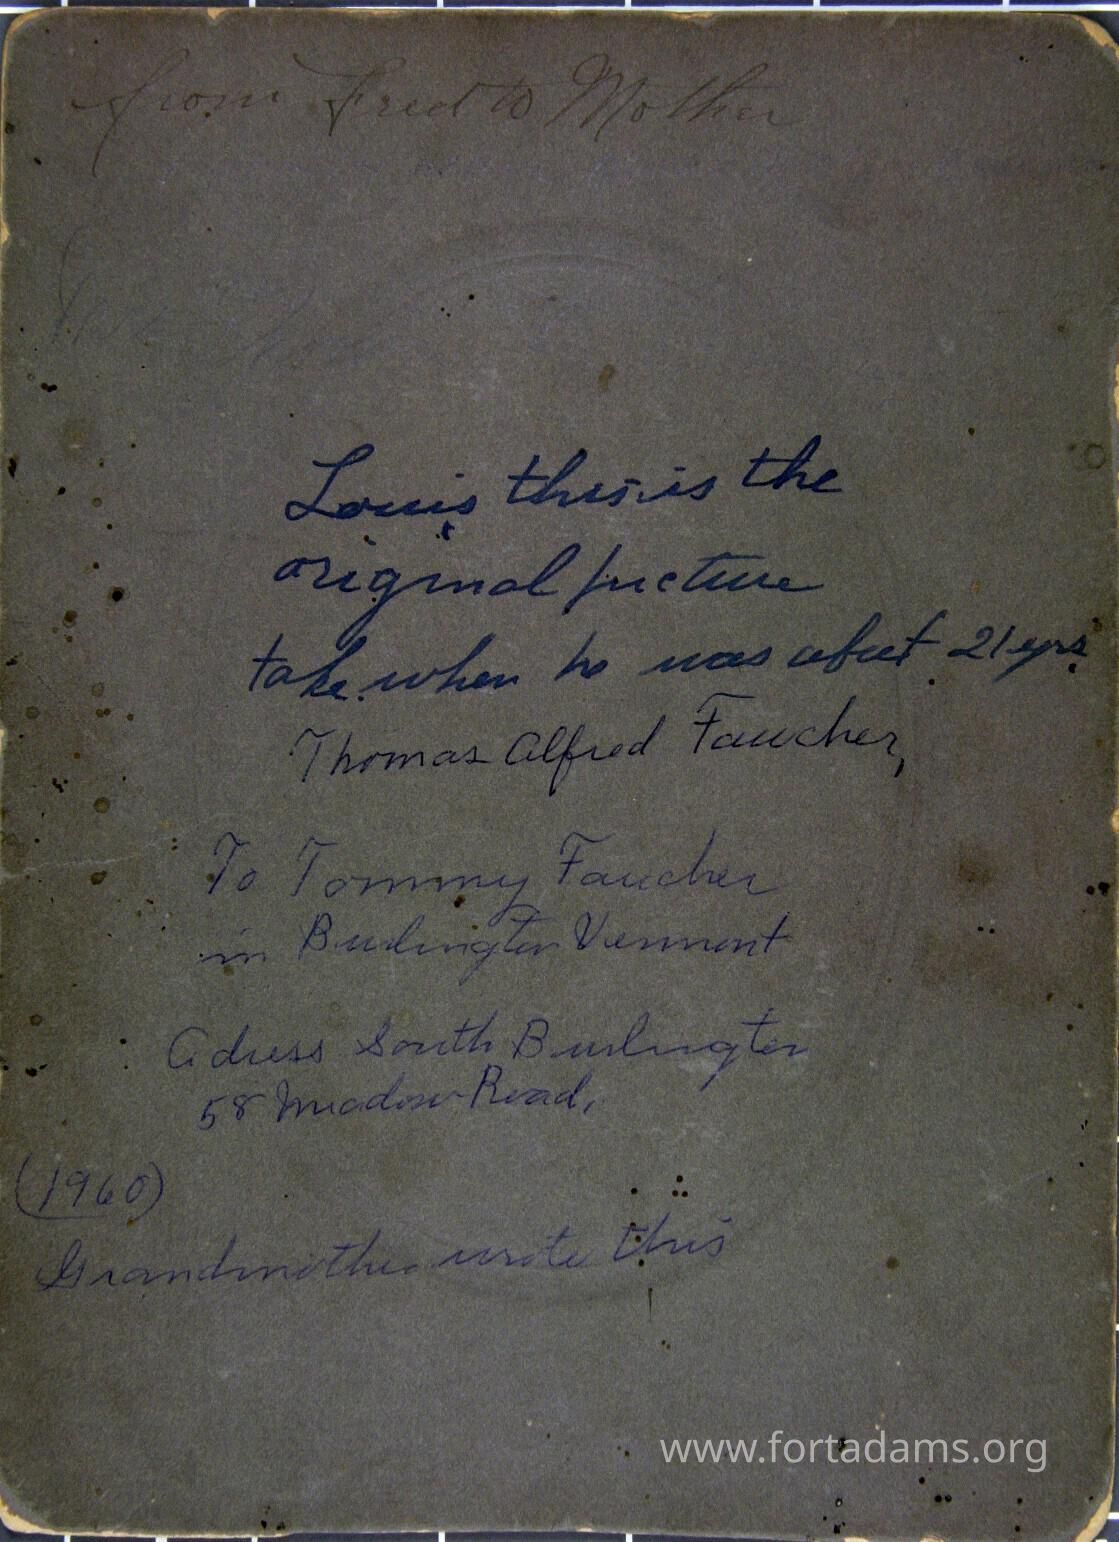 from Fred to Mother
Louis this is the
original picture
take when he was about 21 yrs
Thomas Alfred Faucher,
To Tommy Faucher
in Burlington Vermont
Adress South Burlington
58 Meadow Road,
(1960)
Grandmother wrote this
www.fortadams.org